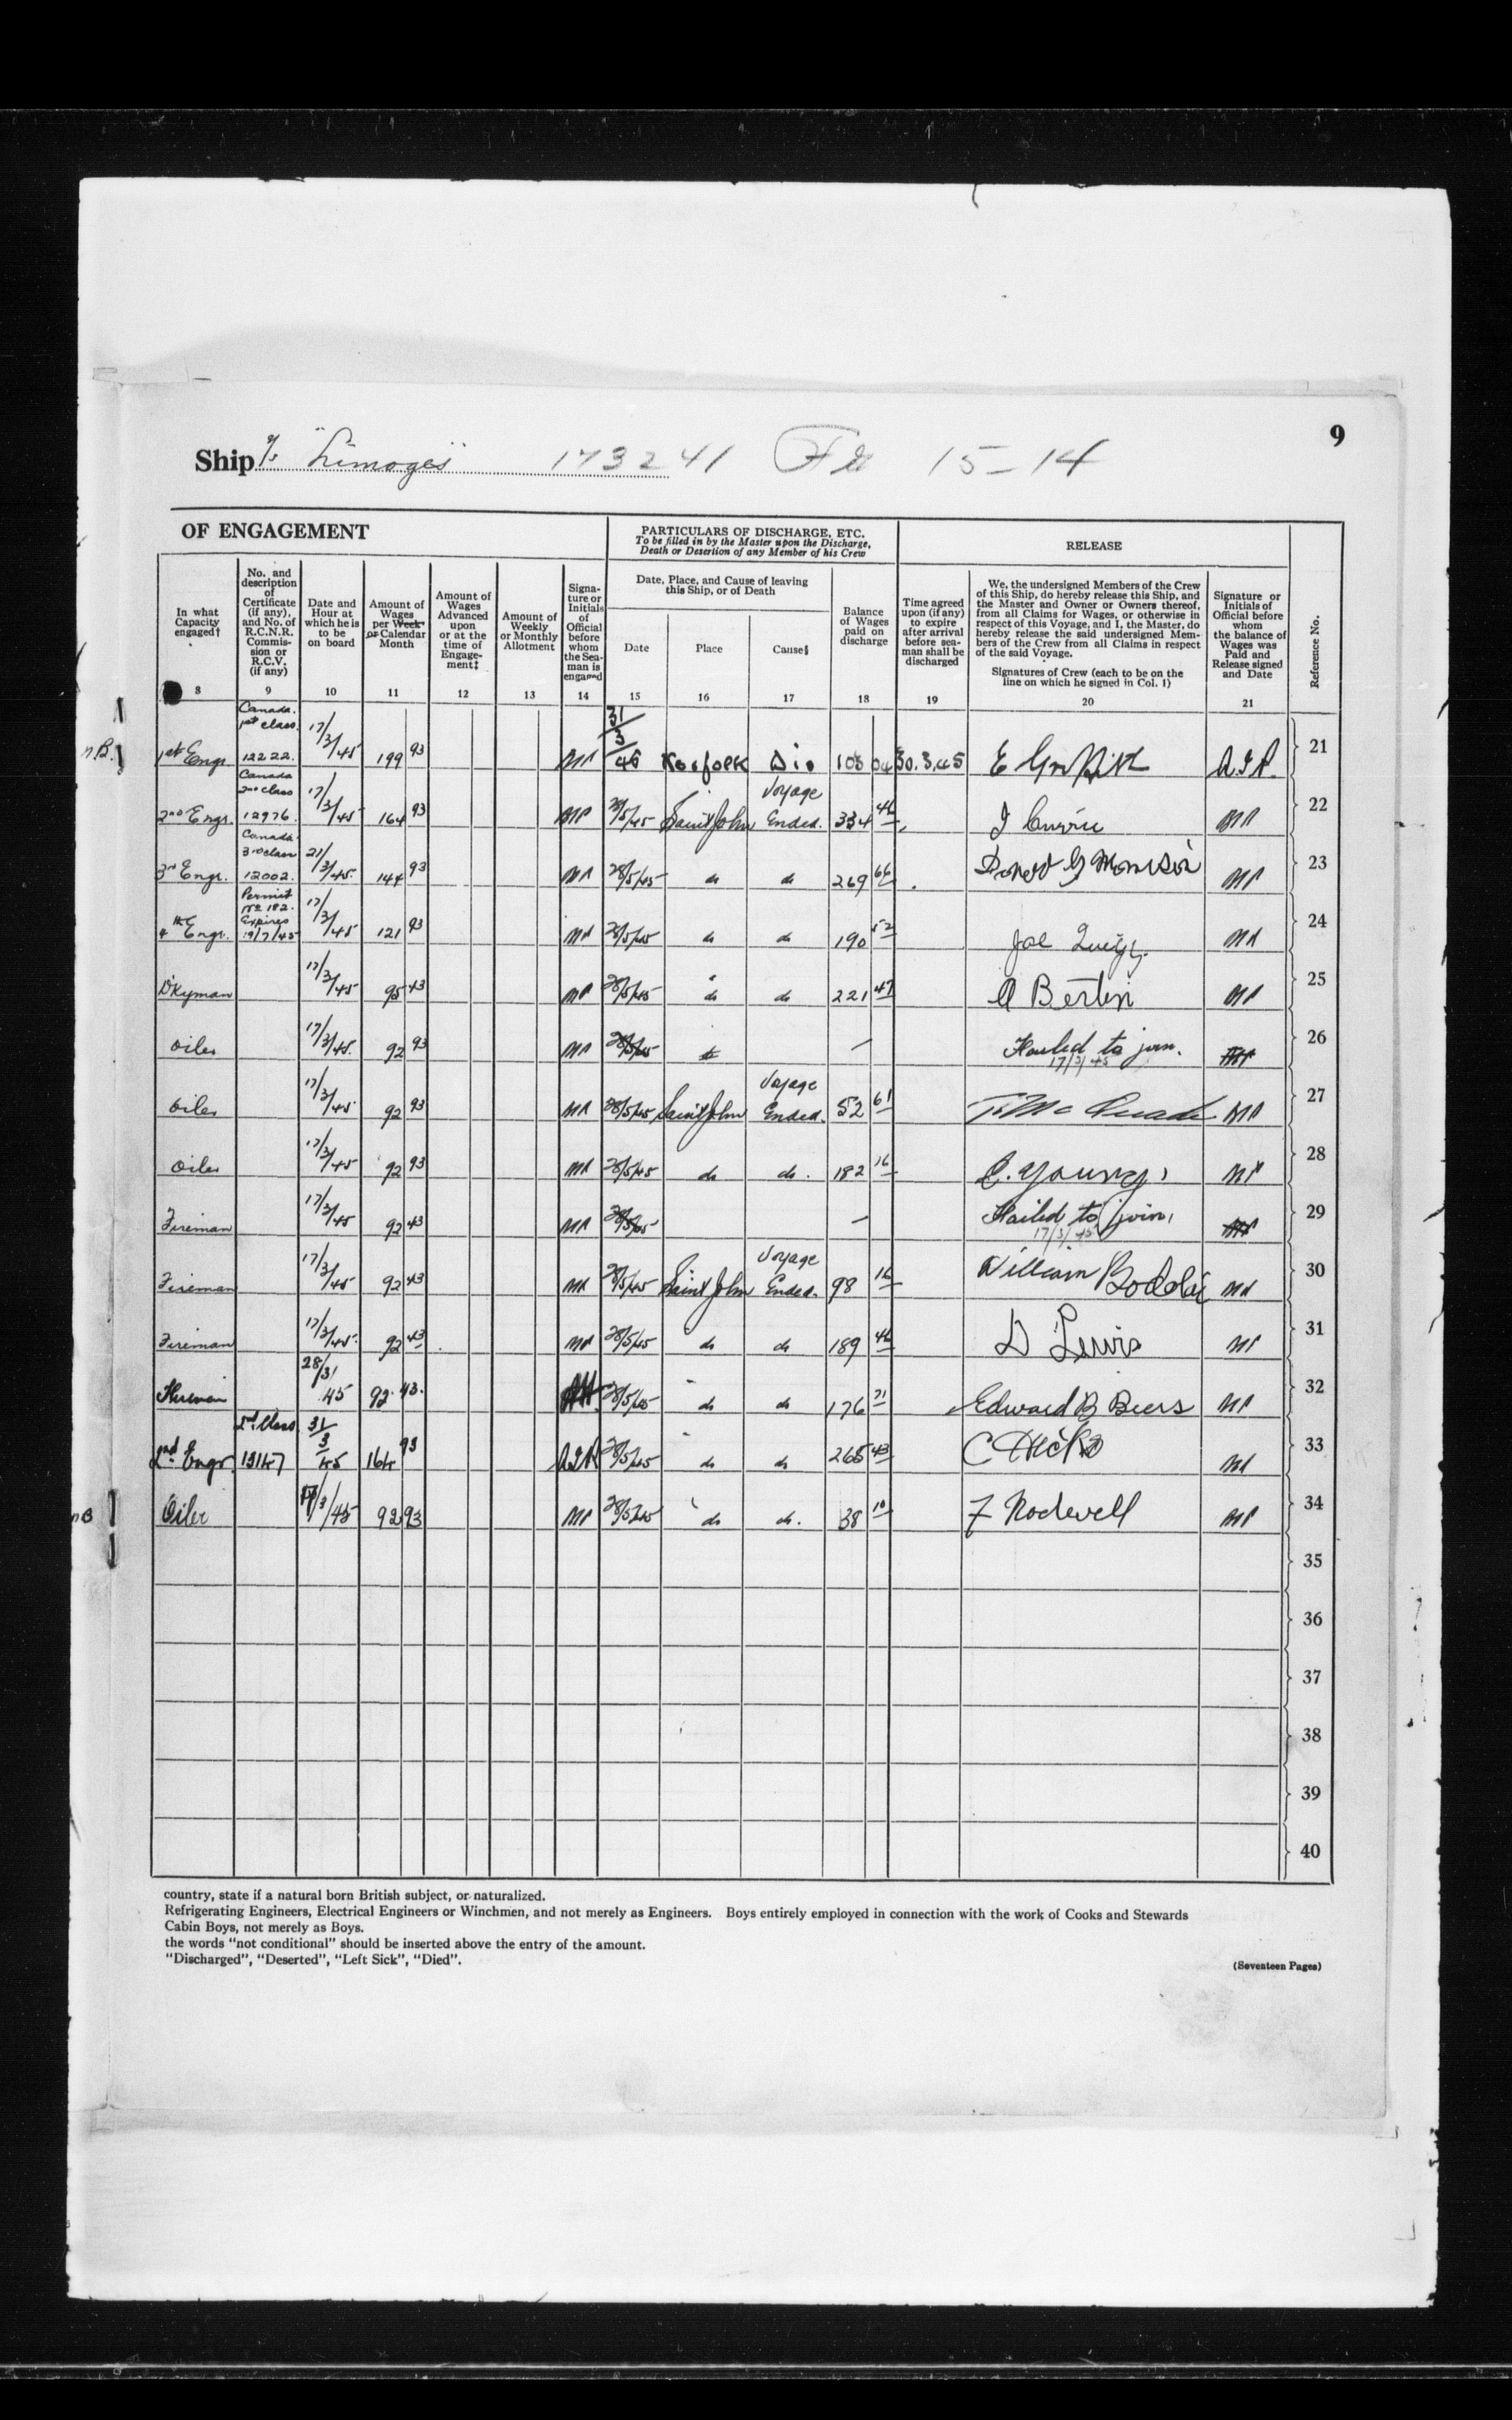 9
Ship "Limoges" 173241 15-14
OF ENGAGEMENT
PARTICULARS OF DISCHARGE, ETC.
To be filled in by the Master upon the Discharge,
Death or Desertion of any Member of his Crew
RELEASE
In what Capacity engaged†
No. and description of Certificate (if any), and No. of R.C.N.R. Commission or R.C.V. (if any)
Date and Hour at which he is to be on board
Amount of Wages per Week or Calendar Month
Amount of Wages Advanced upon or at the time of Engagement‡
Amount of Weekly or Monthly Allotment
Signature or Initials of Official before whom the Seaman is engaged
Date, Place, and Cause of leaving this Ship, or of Death
Date
Place
Cause§
Balance of Wages paid on discharge
Time agreed upon (if any) to expire after arrival before seaman shall be discharged
We, the undersigned Members of the Crew
of this Ship, do hereby release this Ship, and
the Master and Owner or Owners thereof,
from all Claims for Wages, or otherwise in
respect of this Voyage, and I, the Master, do
hereby release the said undersigned Mem-
bers of the Crew from all Claims in respect
of the said Voyage.
Signatures of Crew (each to be on the
line on which he signed in Col. 1)
Signature or Initials of Official before whom the balance of Wages was Paid and Release signed and Date
Reference No.
8 9 10 11 12 13 14 15 16 17 18 19 20 21
1st Engr. Canada. 1st class. 12222. 17/3/45 199 93 31/3/45 Norfolk Dis 108 04 30.3.45 21
2nd Engr. Canada 2nd class 12976. 17/3/45 164 93 28/5/45 Saint John Voyage Ended. 334 46 J Currie 22
3rd Engr. Canada. 3rd class 12002. 21/3/45. 144 93 28/5/45 do do 269 66 23
4th Engr. Permit No 182. Expires 19/7/45 17/3/45 121 93 28/5/45 do do 190 52 Joe Quigg. 24
D'kyman 17/3/45 95 43 28/5/45 do do 221 47 A Bertin 25
Oiler 17/3/45. 92 93 28/5/45 — Failed to join. 17/3/45 26
Oiler 17/3/45 92 93 28/5/45 Saint John Voyage Ended. 52 61 T. McQuade 27
Oiler 17/3/45 92 93 28/5/45 do do. 182 16 C. Young. 28
Fireman 17/3/45 92 43 28/5/45 — Failed to join. 17/3/45 29
Fireman 17/3/45 92 43 28/5/45 Saint John Voyage Ended. 98 16 William 30
Fireman 17/3/45. 92 43 28/5/45 do do 189 46 D Lewis 31
Fireman 28/3/45 92. 43. 28/5/45 do do 176 21 Edward B Beers 32
2nd Engr. 2nd Class 13147 31/3/45 164 93 28/5/45 do do 265 43 C Hicks 33
Oiler 17/3/45 92 93 28/5/45 do do. 38 10 F Rodwell 34
35
36
37
38
39
40
country, state if a natural born British subject, or naturalized.
Refrigerating Engineers, Electrical Engineers or Winchmen, and not merely as Engineers. Boys entirely employed in connection with the work of Cooks and Stewards
Cabin Boys, not merely as Boys.
the words "not conditional" should be inserted above the entry of the amount.
"Discharged", "Deserted", "Left Sick", "Died".
(Seventeen Pages)